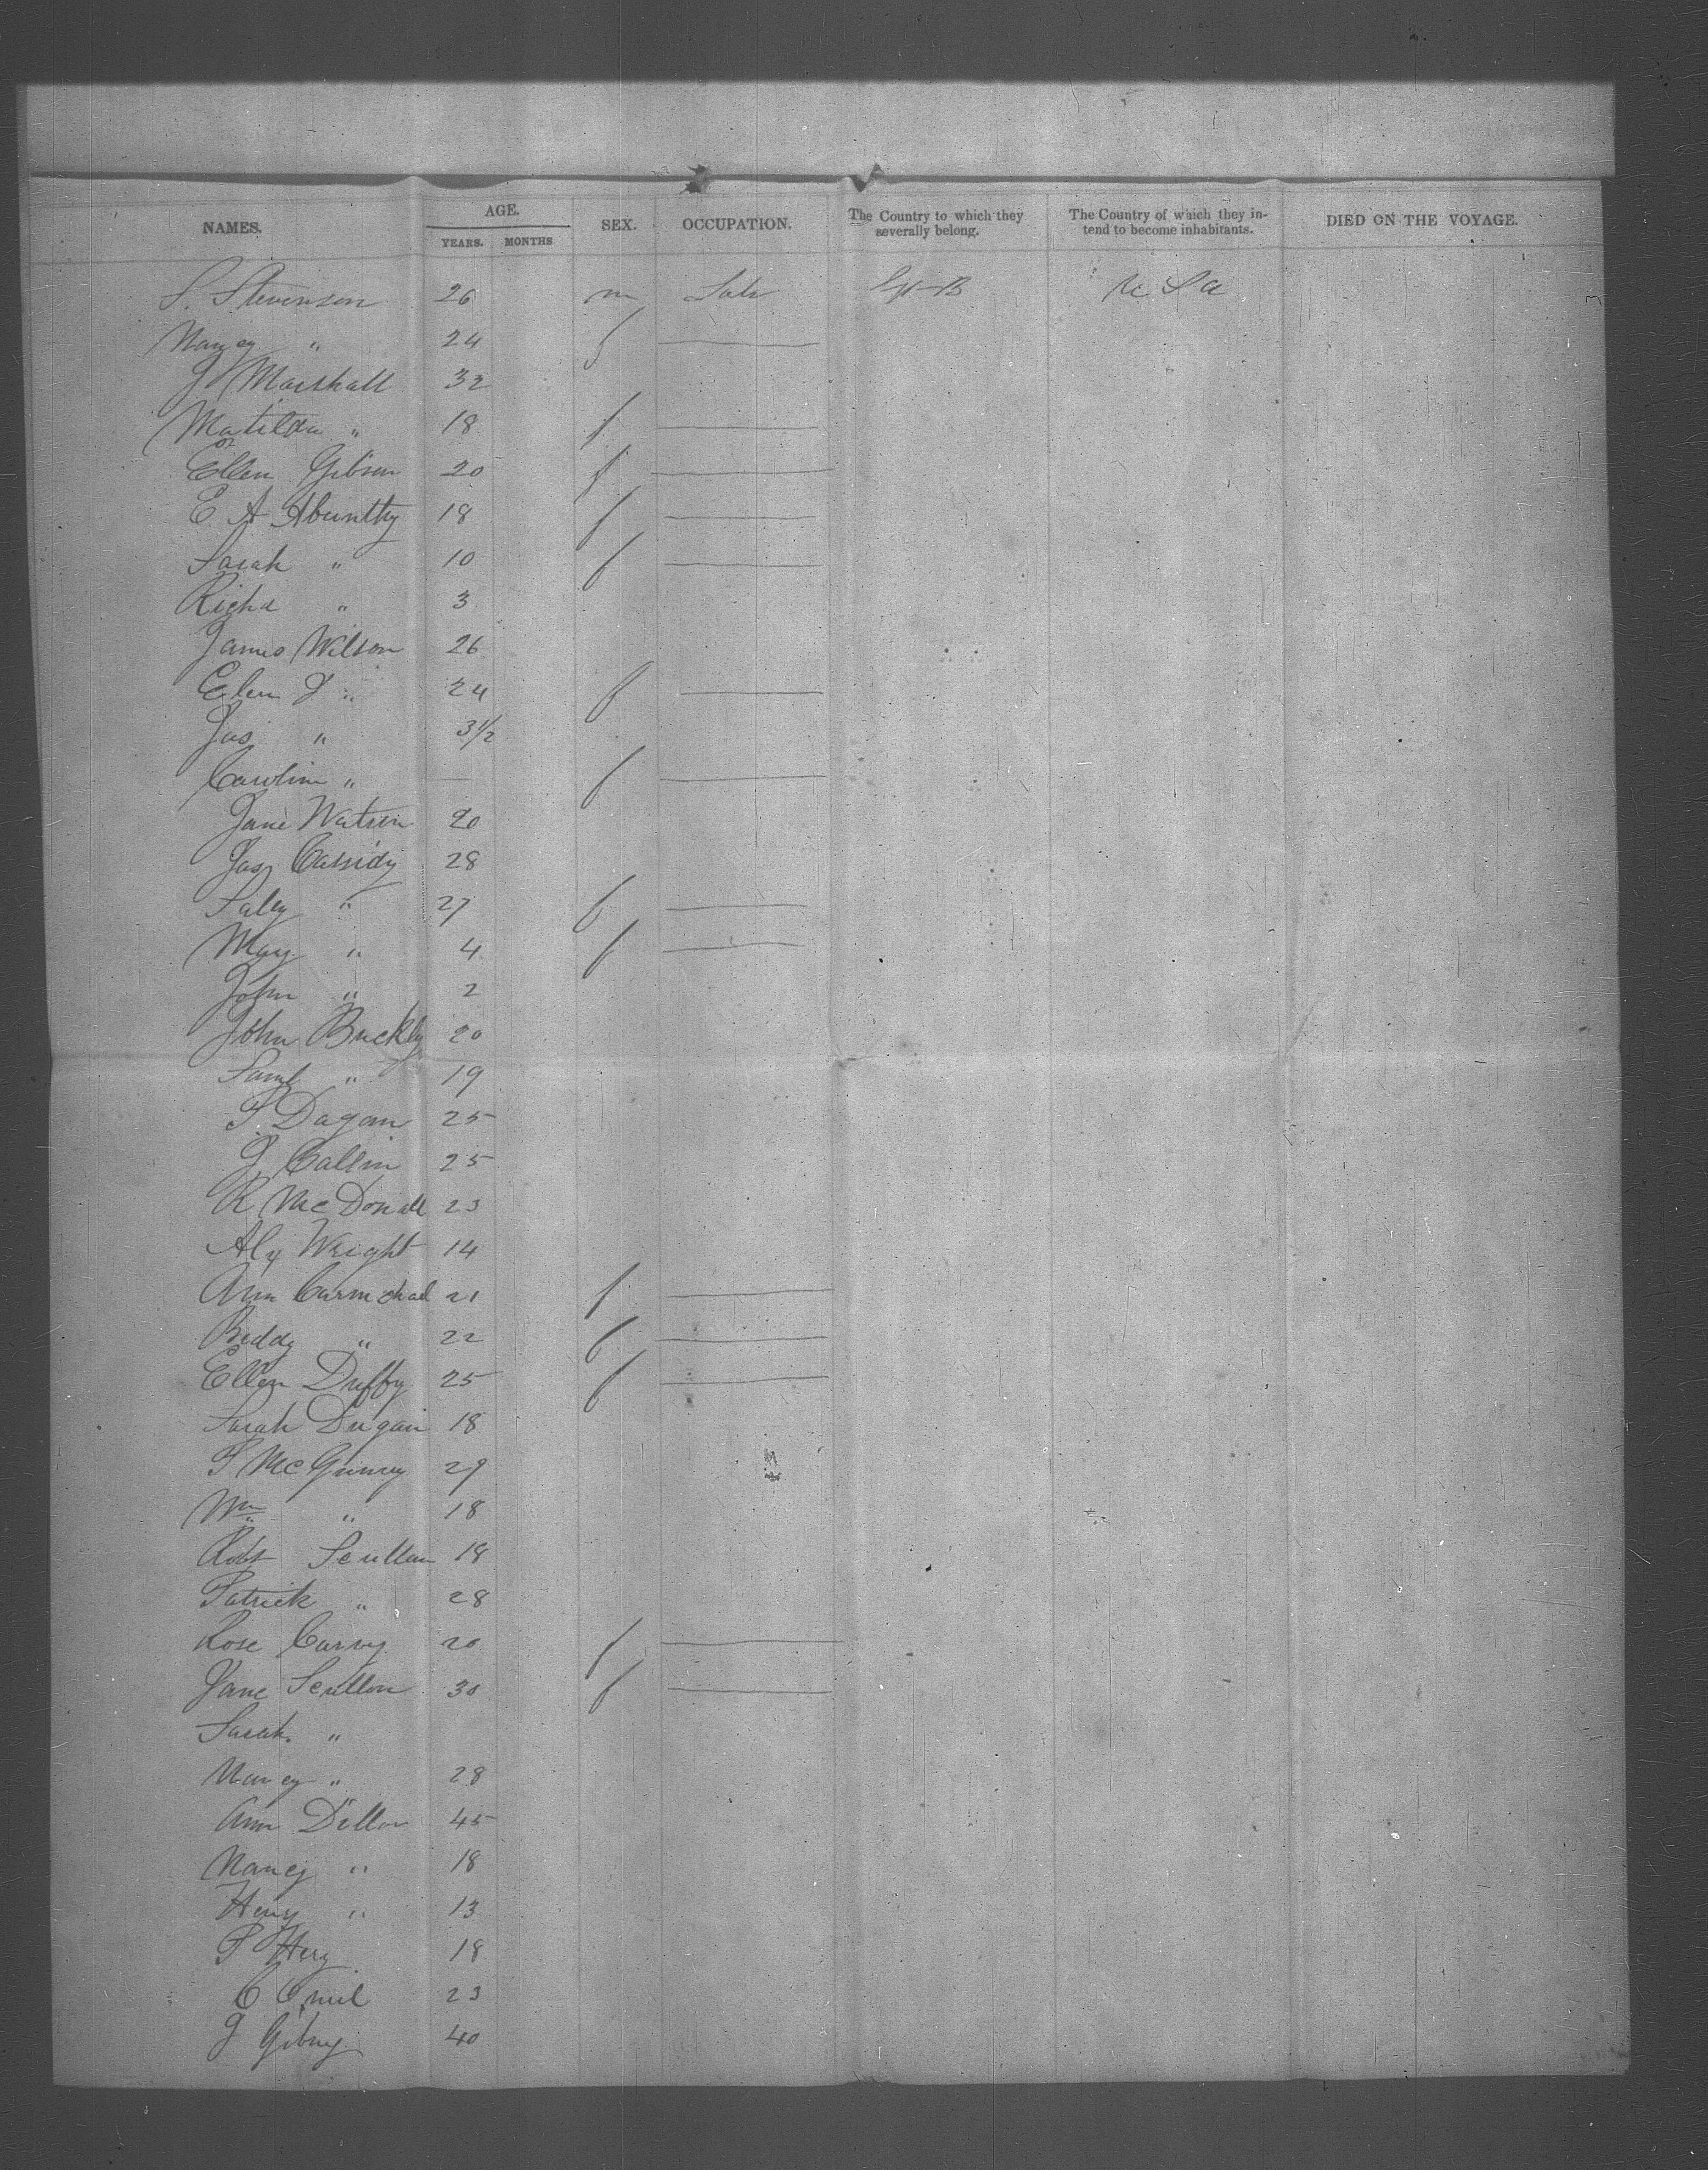 NAMES. AGE. YEARS. MONTHS SEX. OCCUPATION. The Country to which they severally belong. The Country of which they intend to become inhabitants. DIED ON THE VOYAGE.
S. Stevenson 26 m Labr Gt B U S A
Nancy " 24 f
J Marshall 32
Matilda " 18 f
Ellen Gibson 20 f
E A Abernthy 18 f
Sarah " 10 f
Richd " 3
James Wilson 26
Elen J " 24 f
Jas " 3½
Caroline " — f
Jane Watson 20
Jas Cassidy 28
" 27 f
Mary " 4 f
John " 2
John Buckly 20
Saml " 19
Dagan 25
J 25
R McDonall 23
Alx Wright 14
Ann Carmichael 21 f
Biddy " 22 f
Ellen Duffy 25 f
Sarah Dugan 18
29
Wm " 18
Robt Scullan 18
Patrick " 28
Rose 20 f
Jane Scullon 30 f
Sarah "
Nancy " 28
Ann Dillon 45
Nancy " 18
Henry " 13
18
C 23
J Gibny 40